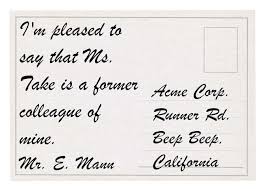 I'm pleased to
say that Ms.
Take is a former
colleague of
mine.
Mr. E. Mann
Acme Corp.
Runner Rd.
Beep Beep.
California